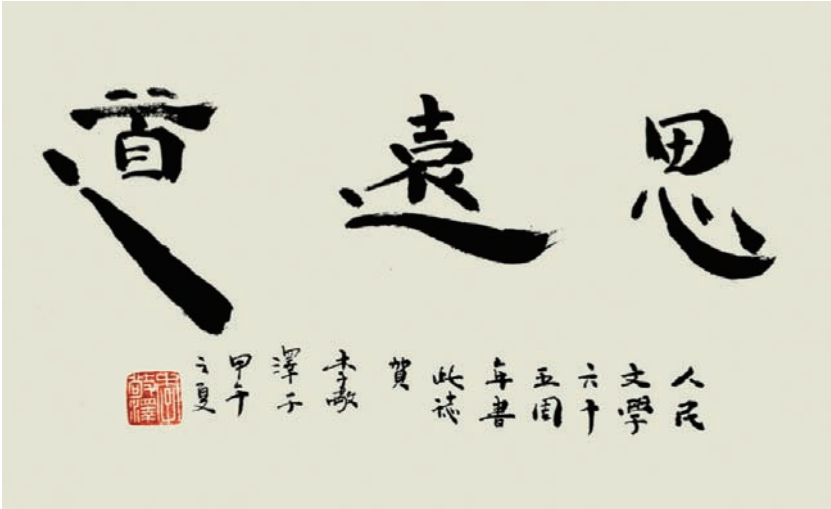 思遠道
人民
文學
六十
五周
年書
此誌
賀
李敬
澤于
甲午
之夏
敬澤